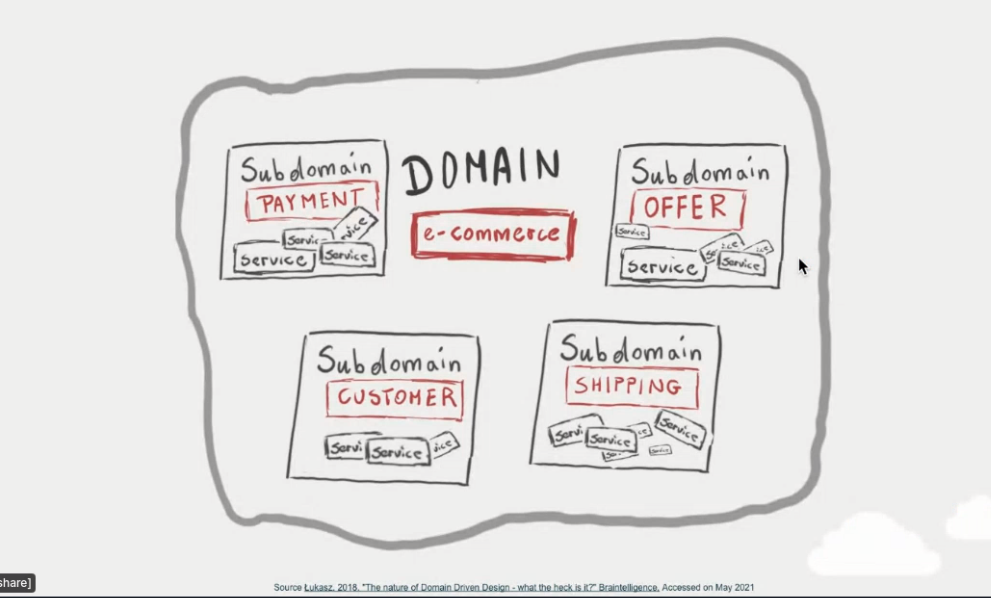 DOMAIN
e-commerce
Subdomain
PAYMENT
Service
Service
Subdomain
OFFER
Service
Service
Service
Subdomain
CUSTOMER
Servi
Service
vice
Subdomain
SHIPPING
Servi
Service
Service
Service
share]
Source Łukasz, 2018. "The nature of Domain Driven Design - what the heck is it?" Braintelligence, Accessed on May 2021